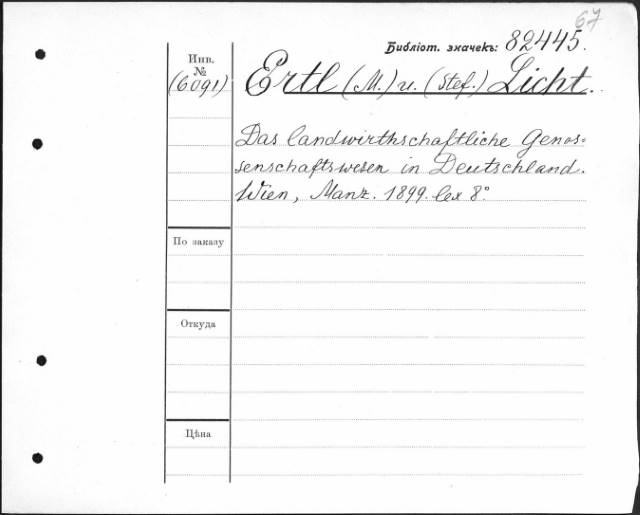 67
Библіот. значекъ: 82445.
Инв.
№
(6091)
Ertl (M.) u. (Stef.) Licht.
Das landwirthschaftliche Genos=
senschaftswesen in Deutschland.
Wien, Manz. 1899. Lex 8°.
По заказу
Откуда
Цѣна